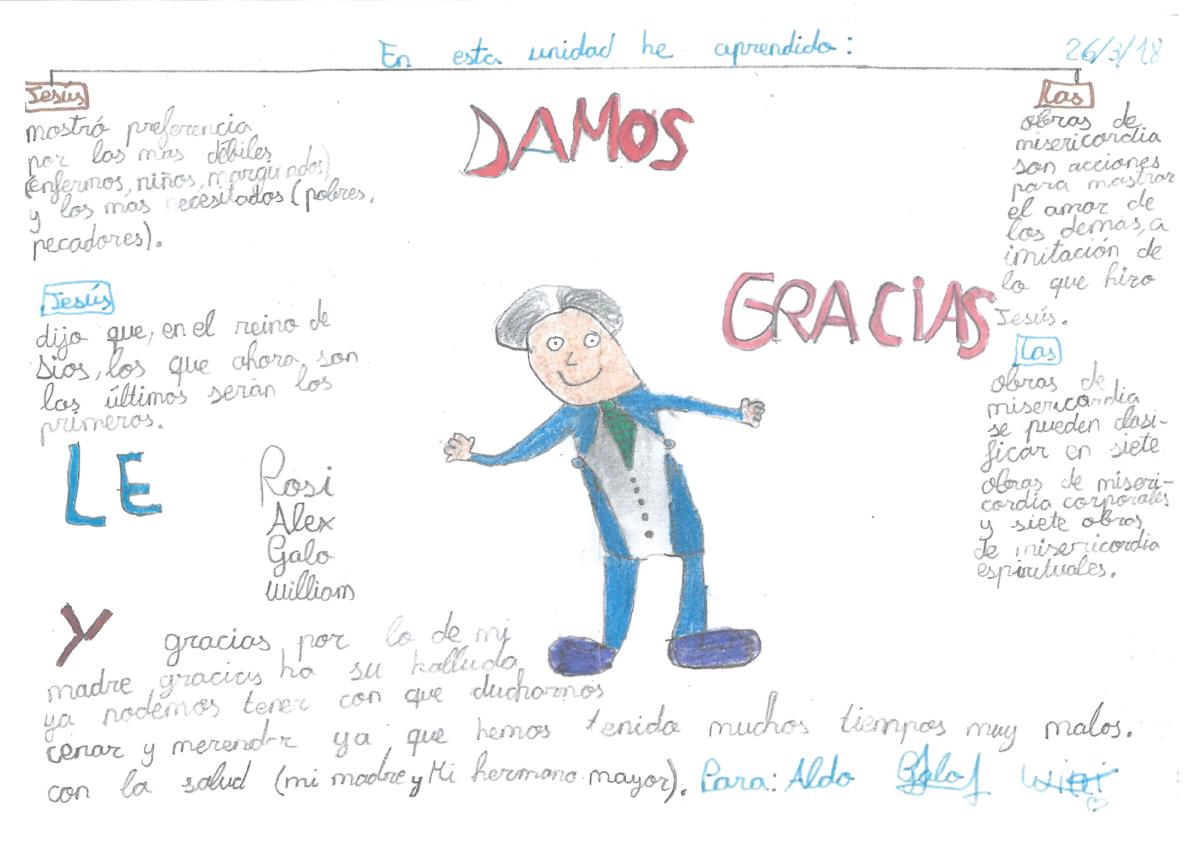 En esta unidad he aprendido:
26/3/18
Jesús
mostró preferencia
por los mas débiles
(enfermos, niños, marguinados)
y los mas necesitados (pobres,
pecadores).
Jesús
dijo que, en el reino de
sios, los que ahora son
los últimos serán los
primeros.
DAMOS
GRACIAS
Las
obras de
misericordia
son acciones
para mostrar
el amor de
los demas, a
imitación de
lo que hizo
Jesús.
Las
obras de
misericordia
se pueden clasi-
ficar en siete
obras de miseri-
cordia corporales
y siete obras
de misericordia
espirituales.
LE
Rosi
Alex
Galo
William
Y gracias por lo de mi
madre gracias ha su halluda
ya podemos tener con que ducharnos
cenar y merendar ya que hemos tenido muchos tiempos muy malos.
con la salud (mi madre y Mi hermano mayor). Para: Aldo Galo